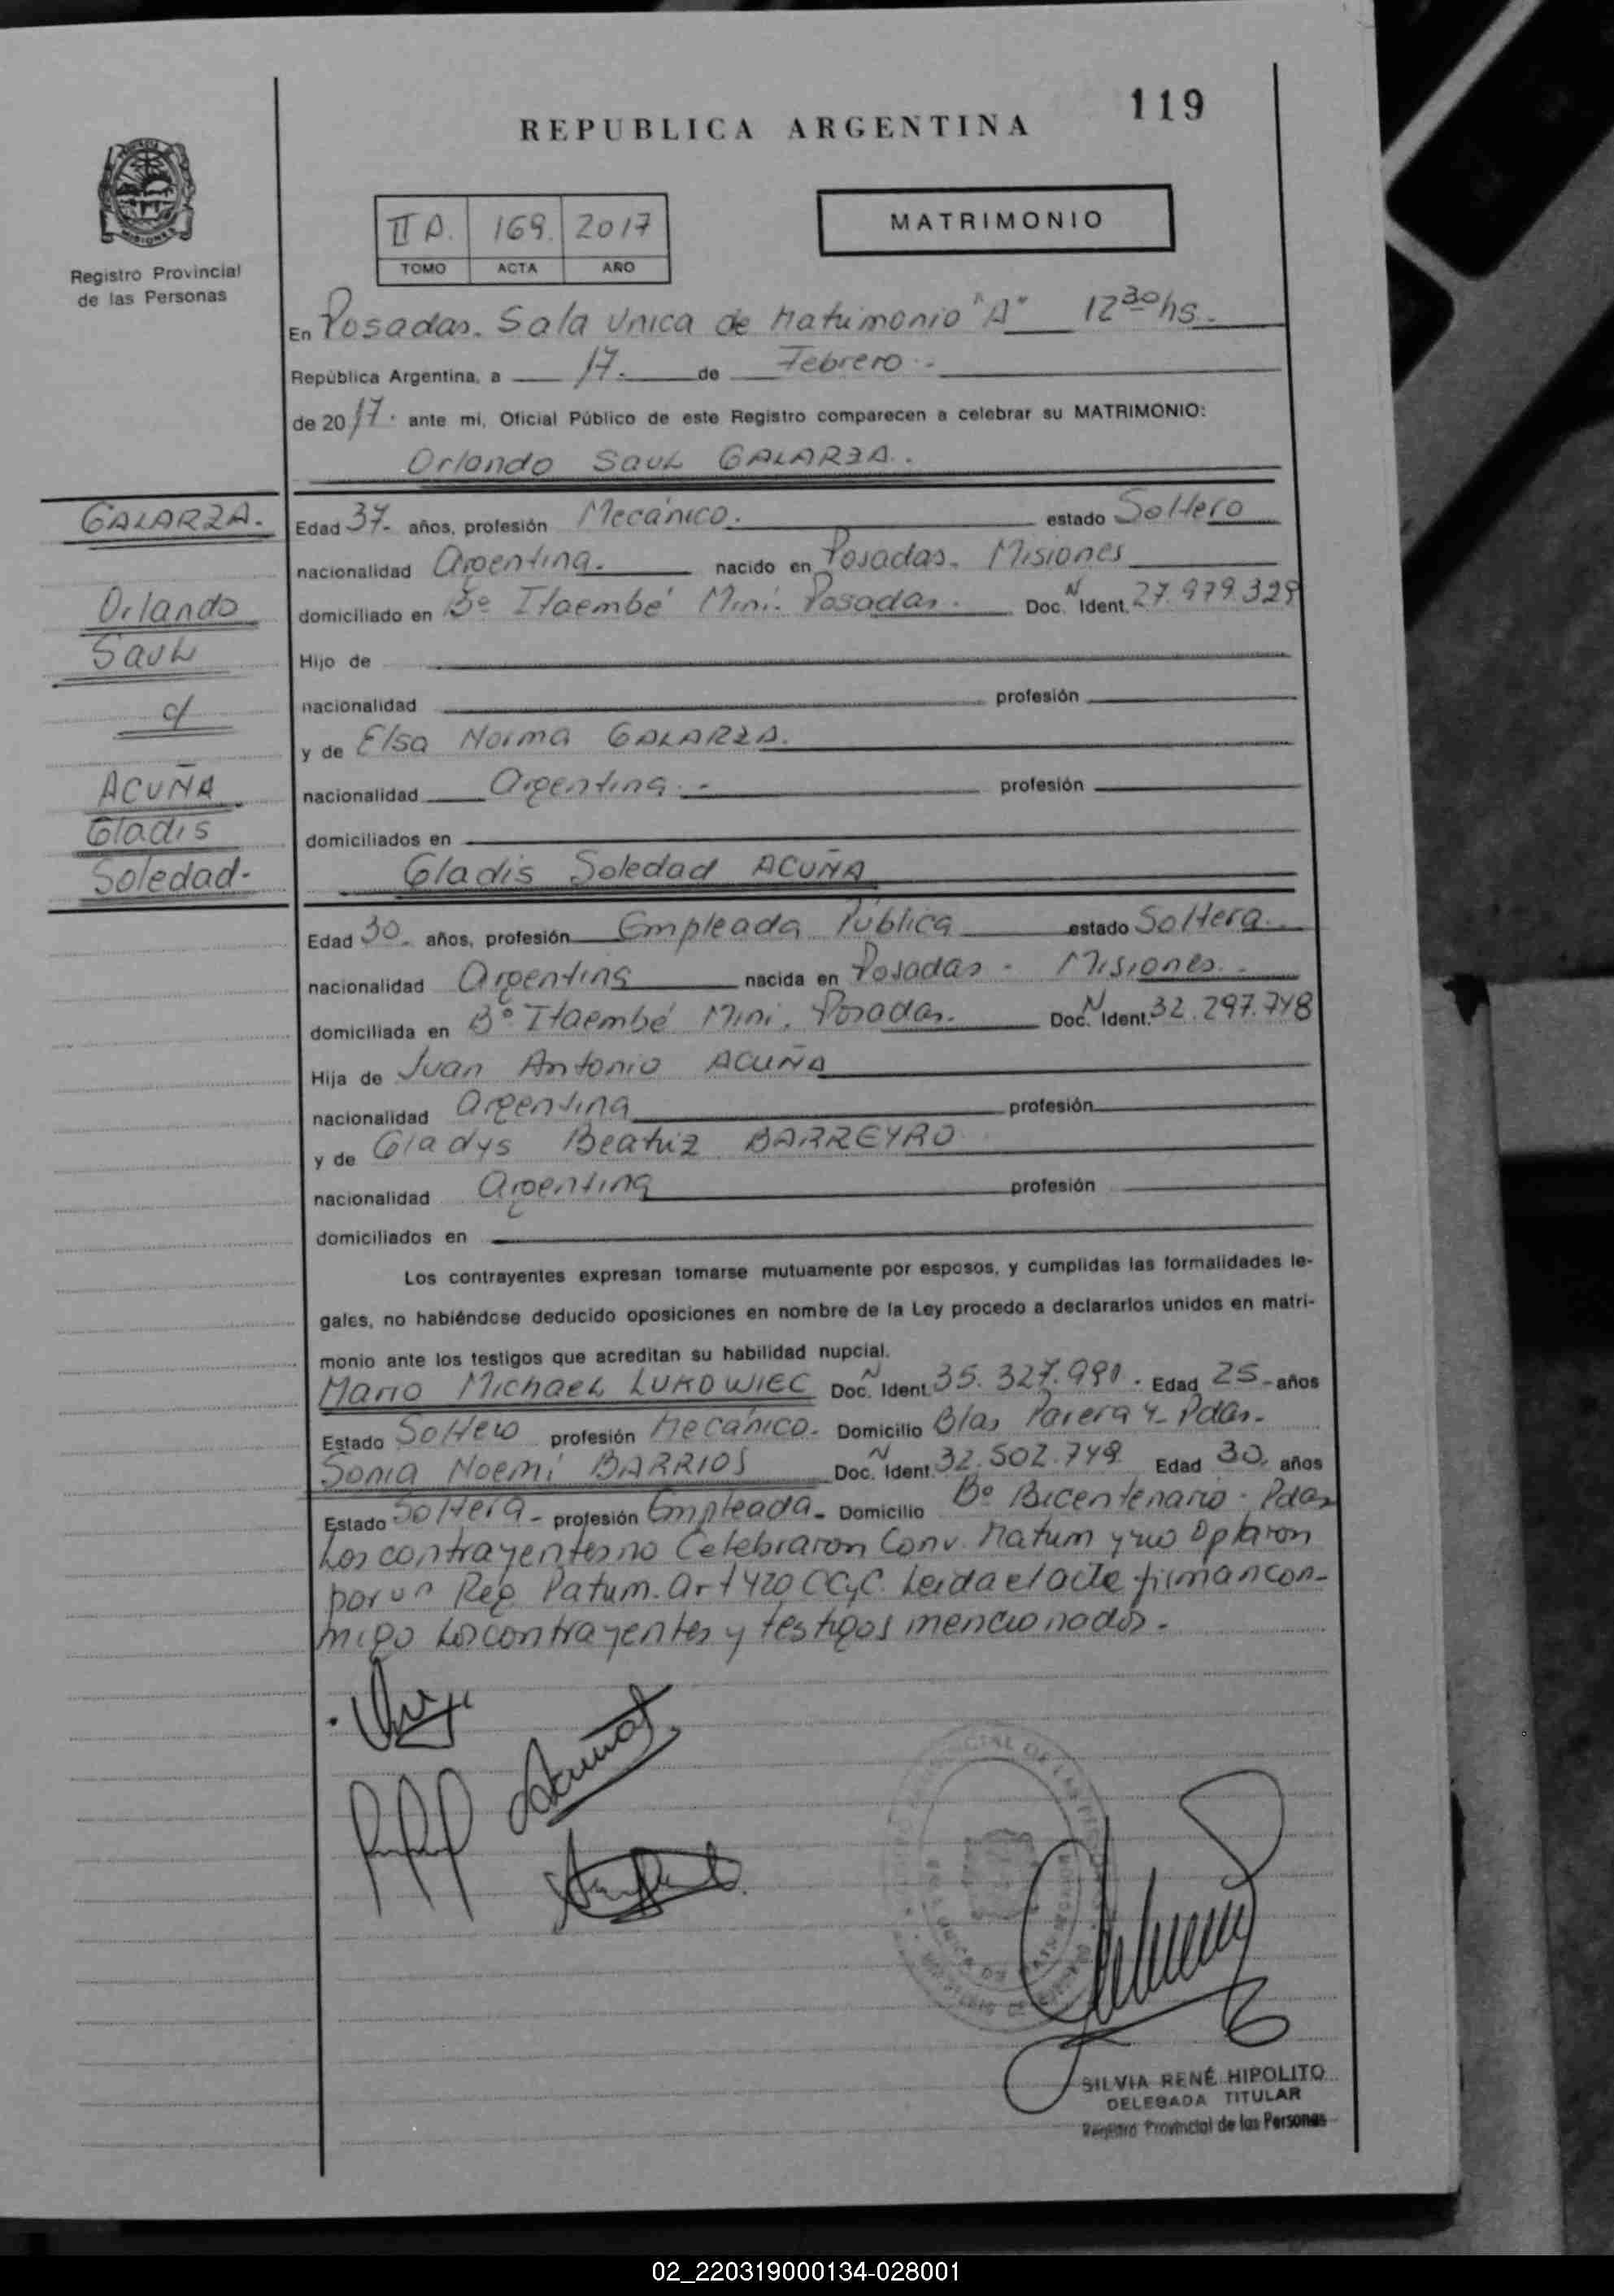 119
REPUBLICA ARGENTINA
MATRIMONIO
II A. 169. 2017
TOMO ACTA AÑO
Registro Provincial
de las Personas
En Posadas. Sala Unica de Matrimonio "A" 12 30 hs.
República Argentina, a 17. de Febrero.-
de 2017. ante mi, Oficial Público de este Registro comparecen a celebrar su MATRIMONIO:
Orlando Saul GALARZA.
GALARZA.
Orlando
Saul
c/
ACUÑA
Gladis
Soledad-
Edad 37- años, profesión Mecánico. estado Soltero
nacionalidad Argentina. nacido en Posadas. Misiones
domiciliado en Bº Itaembé Mini. Posadas. Doc. N Ident. 27.979.329
Hijo de
nacionalidad profesión
y de Elsa Norma GALARZA.
nacionalidad Argentina.- profesión
domiciliados en
Gladis Soledad ACUÑA
Edad 30. años, profesión Empleada Pública estado Soltera.
nacionalidad Argentina nacida en Posadas - Misiones.-
domiciliada en Bº Itaembé Mini. Posadas. Doc. N Ident. 32.297.748
Hija de Juan Antonio ACUÑA
nacionalidad Argentina profesión
y de Gladys Beatriz BARREYRO
nacionalidad Argentina profesión
domiciliados en
Los contrayentes expresan tomarse mutuamente por esposos, y cumplidas las formalidades le-
gales, no habiéndose deducido oposiciones en nombre de la Ley procedo a declararlos unidos en matri-
monio ante los testigos que acreditan su habilidad nupcial.
Mario Michael LUKOWIEC Doc. N Ident. 35.327.991. Edad 25- años
Estado Soltero profesión Mecánico. Domicilio Blas Parera Pdas.
Sonia Noemi BARRIOS Doc. N Ident. 32.502.749 Edad 30, años
Estado Soltera- profesión Empleada- Domicilio Bº Bicentenario. Pdas
Los contrayentes no Celebraron Conv. Matrim y no Optaron
por un Reg Patrim. Art 420 CCyC. Leida el acta firman con-
migo Los contrayentes y testigos mencionados.
SILVIA RENÉ HIPOLITO
DELEGADA TITULAR
Registro Provincial de las Personas
02_220319000134-028001